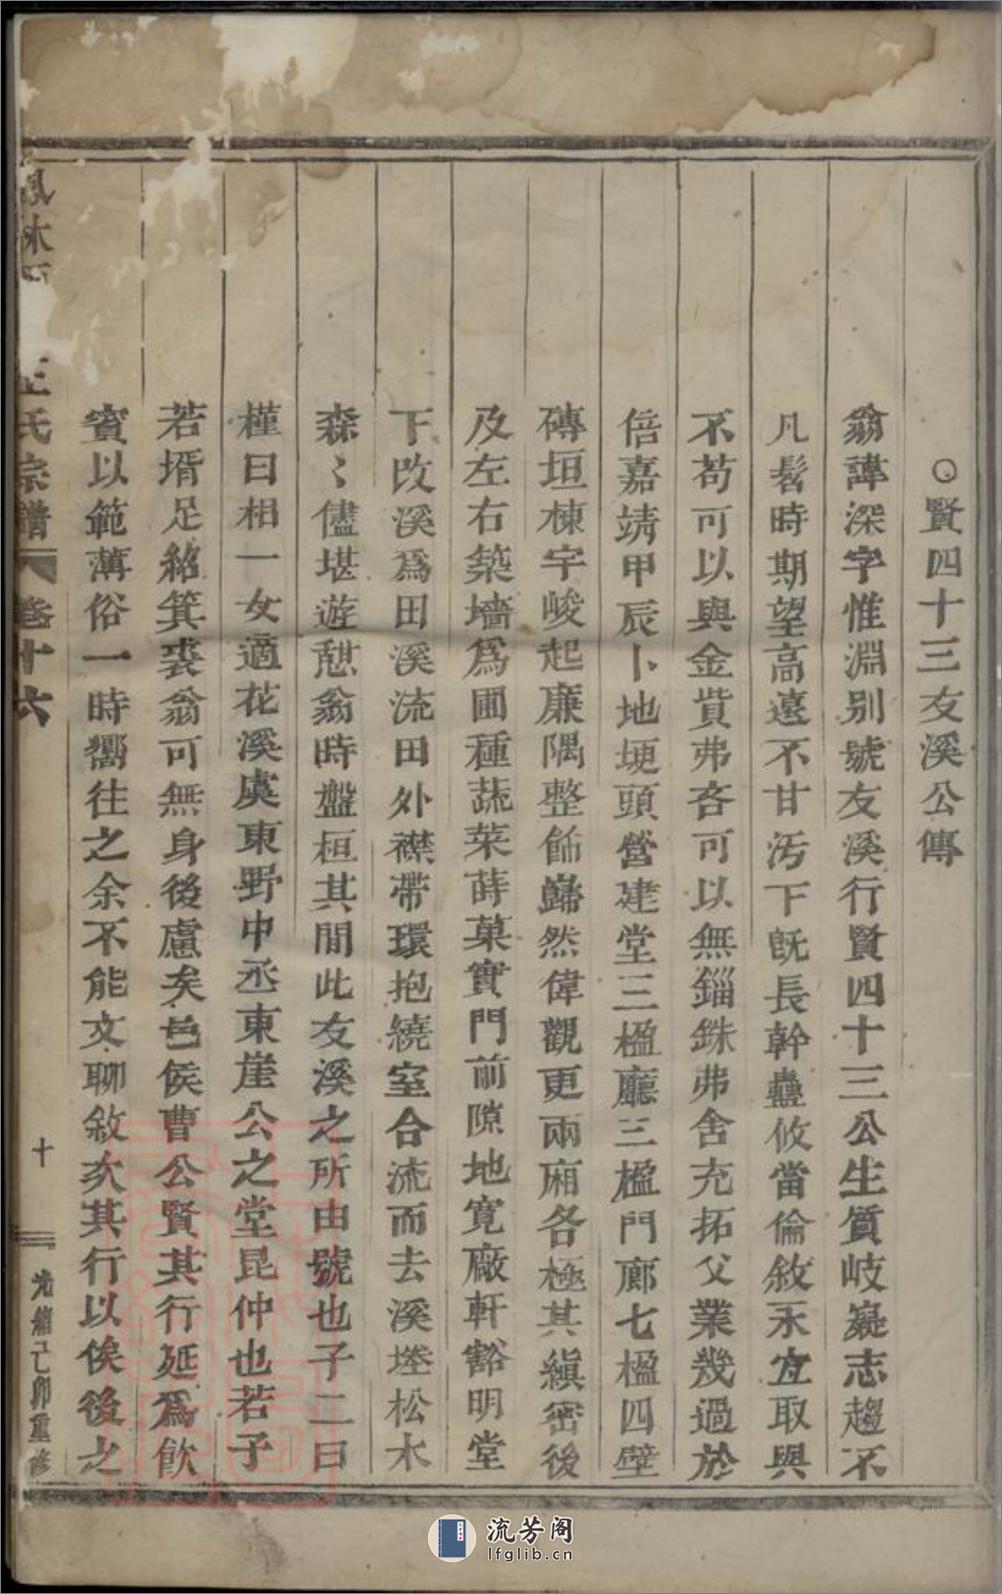 ○賢四十三友溪公傳
翁諱深字惟淵别號友溪行賢四十三公生質岐嶷志趨不
凡髫時期望高遠不甘汚下旣長幹蠱攸當倫敘永宜取與
不苟可以與金貲弗吝可以無錙銖弗舍充拓父業幾過於
倍嘉靖甲辰卜地埂頭營建堂三楹廳三楹門廊七楹四壁
磚垣棟宇峻起廉隅整飾巋然偉觀更兩廂各極其縝密後
及左右築墻爲圃種蔬菜蒔菓實門前隙地寛廠軒豁明堂
下改溪爲田溪流田外襟帶環抱繞室合流而去溪塂松木
森〻儘堪遊憇翁時盤桓其間此友溪之所由號也子二曰
槿曰相一女適花溪虞東野中丞東崖公之堂昆仲也若子
若壻足紹箕裘翁可無身後慮矣邑侯曹公賢其行延爲飮
賓以範薄俗一時嚮往之余不能文聊敘次其行以俟後之
鳳林 王氏宗譜 卷十六
十
光緖己卯重修
流芳阁
lfglib.cn